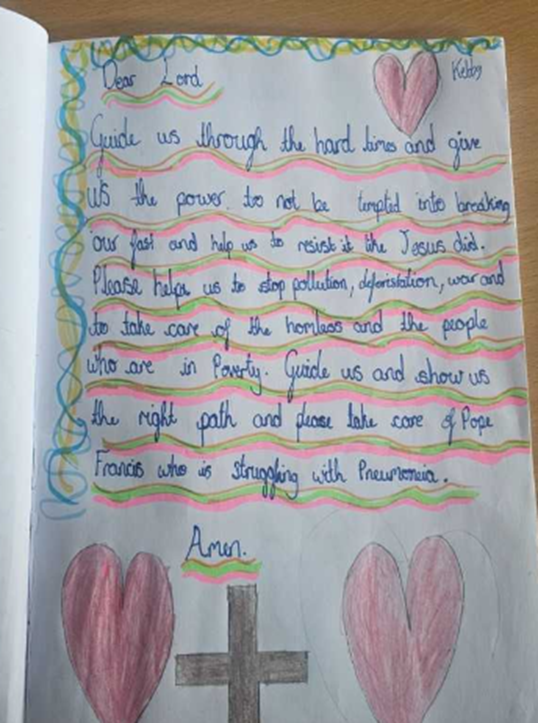 Dear Lord
Kebby
Guide us through the hard times and give
us the power. to not be tempted into breaking
our fast and help us to resist it like Jesus did.
Please helps us to stop pollution, deforistation, war and
to take care of the homless and the people
who are in Poverty. Guide us and show us
the right path and please take care of Pope
Francis who is struggling with Pneumoneia.
Amen.